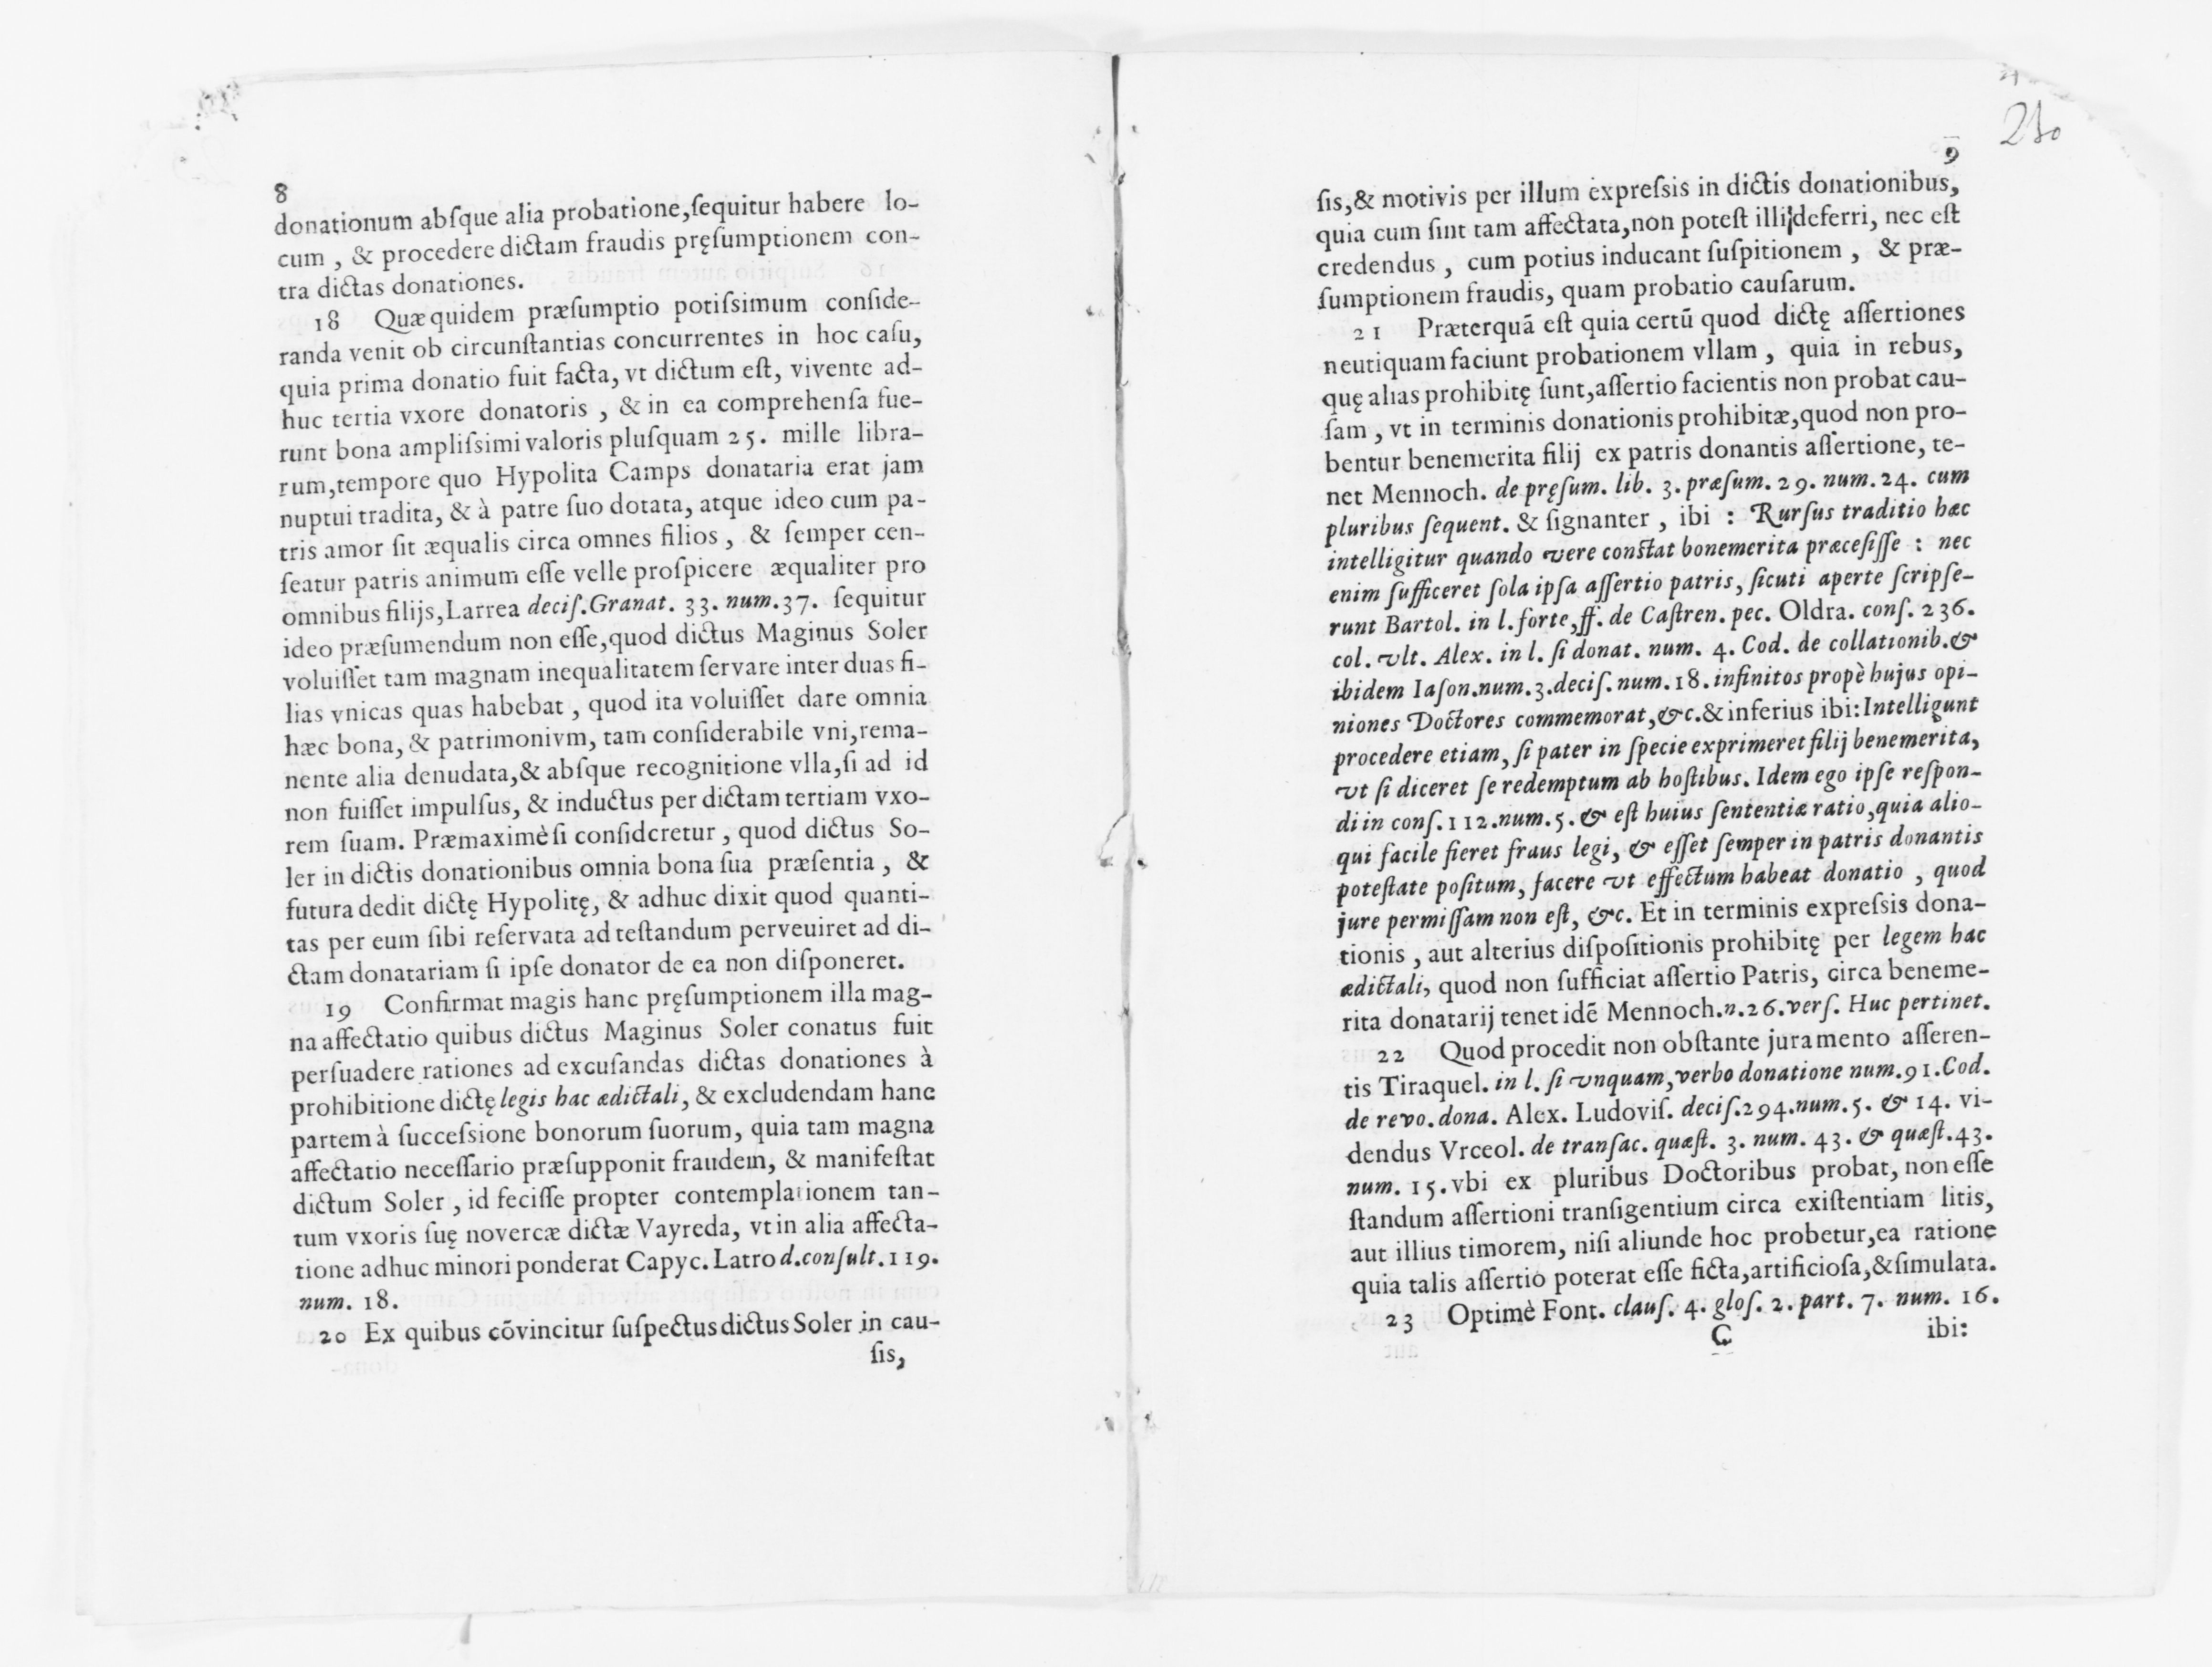 8
donationum abſque alia probatione,ſequitur habere lo-
cum , & procedere dictam fraudis pręſumptionem con-
tra dictas donationes.
18 Quæ quidem præſumptio potiſsimum conſide-
randa venit ob circunſtantias concurrentes in hoc caſu,
quia prima donatio fuit facta, vt dictum eſt, vivente ad-
huc tertia vxore donatoris , & in ea comprehenſa fue-
runt bona ampliſsimi valoris pluſquam 25. mille libra-
rum,tempore quo Hypolita Camps donataria erat jam
nuptui tradita, & à patre ſuo dotata, atque ideo cum pa-
tris amor ſit æqualis circa omnes filios , & ſemper cen-
ſeatur patris animum eſſe velle proſpicere æqualiter pro
omnibus filijs,Larrea deciſ.Granat. 33. num.37. ſequitur
ideo præſumendum non eſſe,quod dictus Maginus Soler
voluiſſet tam magnam inequalitatem ſervare inter duas fi-
lias vnicas quas habebat , quod ita voluiſſet dare omnia
hæc bona, & patrimonivm, tam conſiderabile vni,rema-
nente alia denudata,& abſque recognitione vlla,ſi ad id
non fuiſſet impulſus, & inductus per dictam tertiam vxo-
rem ſuam. Præmaximè ſi conſideretur , quod dictus So-
ler in dictis donationibus omnia bona ſua præſentia , &
futura dedit dictę Hypolitę, & adhuc dixit quod quanti-
tas per eum ſibi reſervata ad teſtandum perveuiret ad di-
ctam donatariam ſi ipſe donator de ea non diſponeret.
19 Confirmat magis hanc pręſumptionem illa mag-
na affectatio quibus dictus Maginus Soler conatus fuit
perſuadere rationes ad excuſandas dictas donationes à
prohibitione dictę legis hac ædictali, & excludendam hanc
partem à ſucceſsione bonorum ſuorum, quia tam magna
affectatio neceſſario præſupponit fraudem, & manifeſtat
dictum Soler , id feciſſe propter contemplationem tan-
tum vxoris ſuę novercæ dictæ Vayreda, vt in alia affecta-
tione adhuc minori ponderat Capyc. Latro d.conſult.119.
num. 18.
20 Ex quibus cõvincitur ſuſpectus dictus Soler in cau-
ſis,
210
9
ſis,& motivis per illum expreſsis in dictis donationibus,
quia cum ſint tam affectata,non poteſt illi deferri, nec eſt
credendus , cum potius inducant ſuſpitionem , & præ-
ſumptionem fraudis, quam probatio cauſarum.
21 Præterquã eſt quia certũ quod dictę aſſertiones
neutiquam faciunt probationem vllam , quia in rebus,
quę alias prohibitę ſunt,aſſertio facientis non probat cau-
ſam , vt in terminis donationis prohibitæ,quod non pro-
bentur benemerita filij ex patris donantis aſſertione, te-
net Mennoch. de pręſum. lib. 3. præſum. 29. num.24. cum
pluribus ſequent. & ſignanter , ibi : Rurſus traditio hæc
intelligitur quando vere conſtat bonemerita præceſiſſe : nec
enim ſufficeret ſola ipſa aſſertio patris, ſicuti aperte ſcripſe-
runt Bartol. in l. forte,ff. de Caſtren. pec. Oldra. conſ. 236.
col. vlt. Alex. in l. ſi donat. num. 4. Cod. de collationib.&
ibidem Iaſon.num.3.deciſ.num.18.infinitos propè hujus opi-
niones Doctores commemorat,&c.& inferius ibi:Intelligunt
procedere etiam, ſi pater in ſpecie exprimeret filij benemerita,
vt ſi diceret ſe redemptum ab hoſtibus. Idem ego ipſe reſpon-
di in conſ.112.num.5.& eſt huius ſententiæ ratio,quia alio-
qui facile fieret fraus legi, & eſſet ſemper in patris donantis
poteſtate poſitum, facere vt effectum habeat donatio , quod
jure permiſſam non eſt, &c. Et in terminis expreſsis dona-
tionis , aut alterius diſpoſitionis prohibitę per legem hac
ædictali, quod non ſufficiat aſſertio Patris, circa beneme-
rita donatarij tenet idẽ Mennoch.n.26.verſ. Huc pertinet.
22 Quod procedit non obſtante juramento aſſeren-
tis Tiraquel. in l. ſi vnquam,verbo donatione num.91.Cod.
de revo. dona. Alex. Ludoviſ. deciſ.294.num.5. & 14. vi-
dendus Vrceol. de tranſac. quæſt. 3. num. 43. & quæſt.43.
num. 15.vbi ex pluribus Doctoribus probat, non eſſe
ſtandum aſſertioni tranſigentium circa exiſtentiam litis,
aut illius timorem, niſi aliunde hoc probetur,ea ratione
quia talis aſſertio poterat eſſe ficta,artificioſa,&ſimulata.
23 Optimè Font. clauſ. 4. gloſ. 2. part. 7. num. 16.
C ibi: